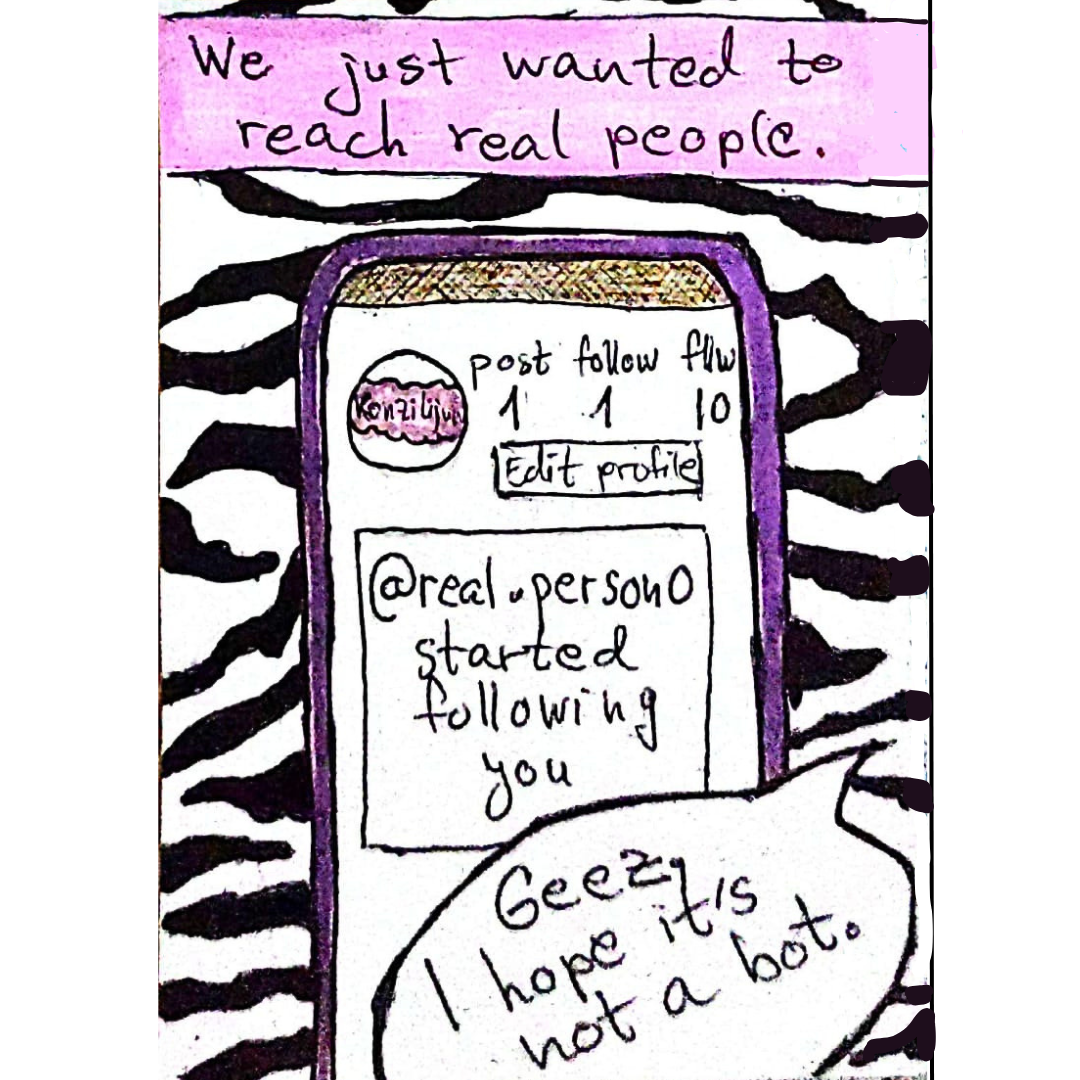 We just wanted to
reach real people.
post follow fllw
1 1 10
Edit profile
@real.person0
started
following
you
Geez,
I hope it's
not a bot.